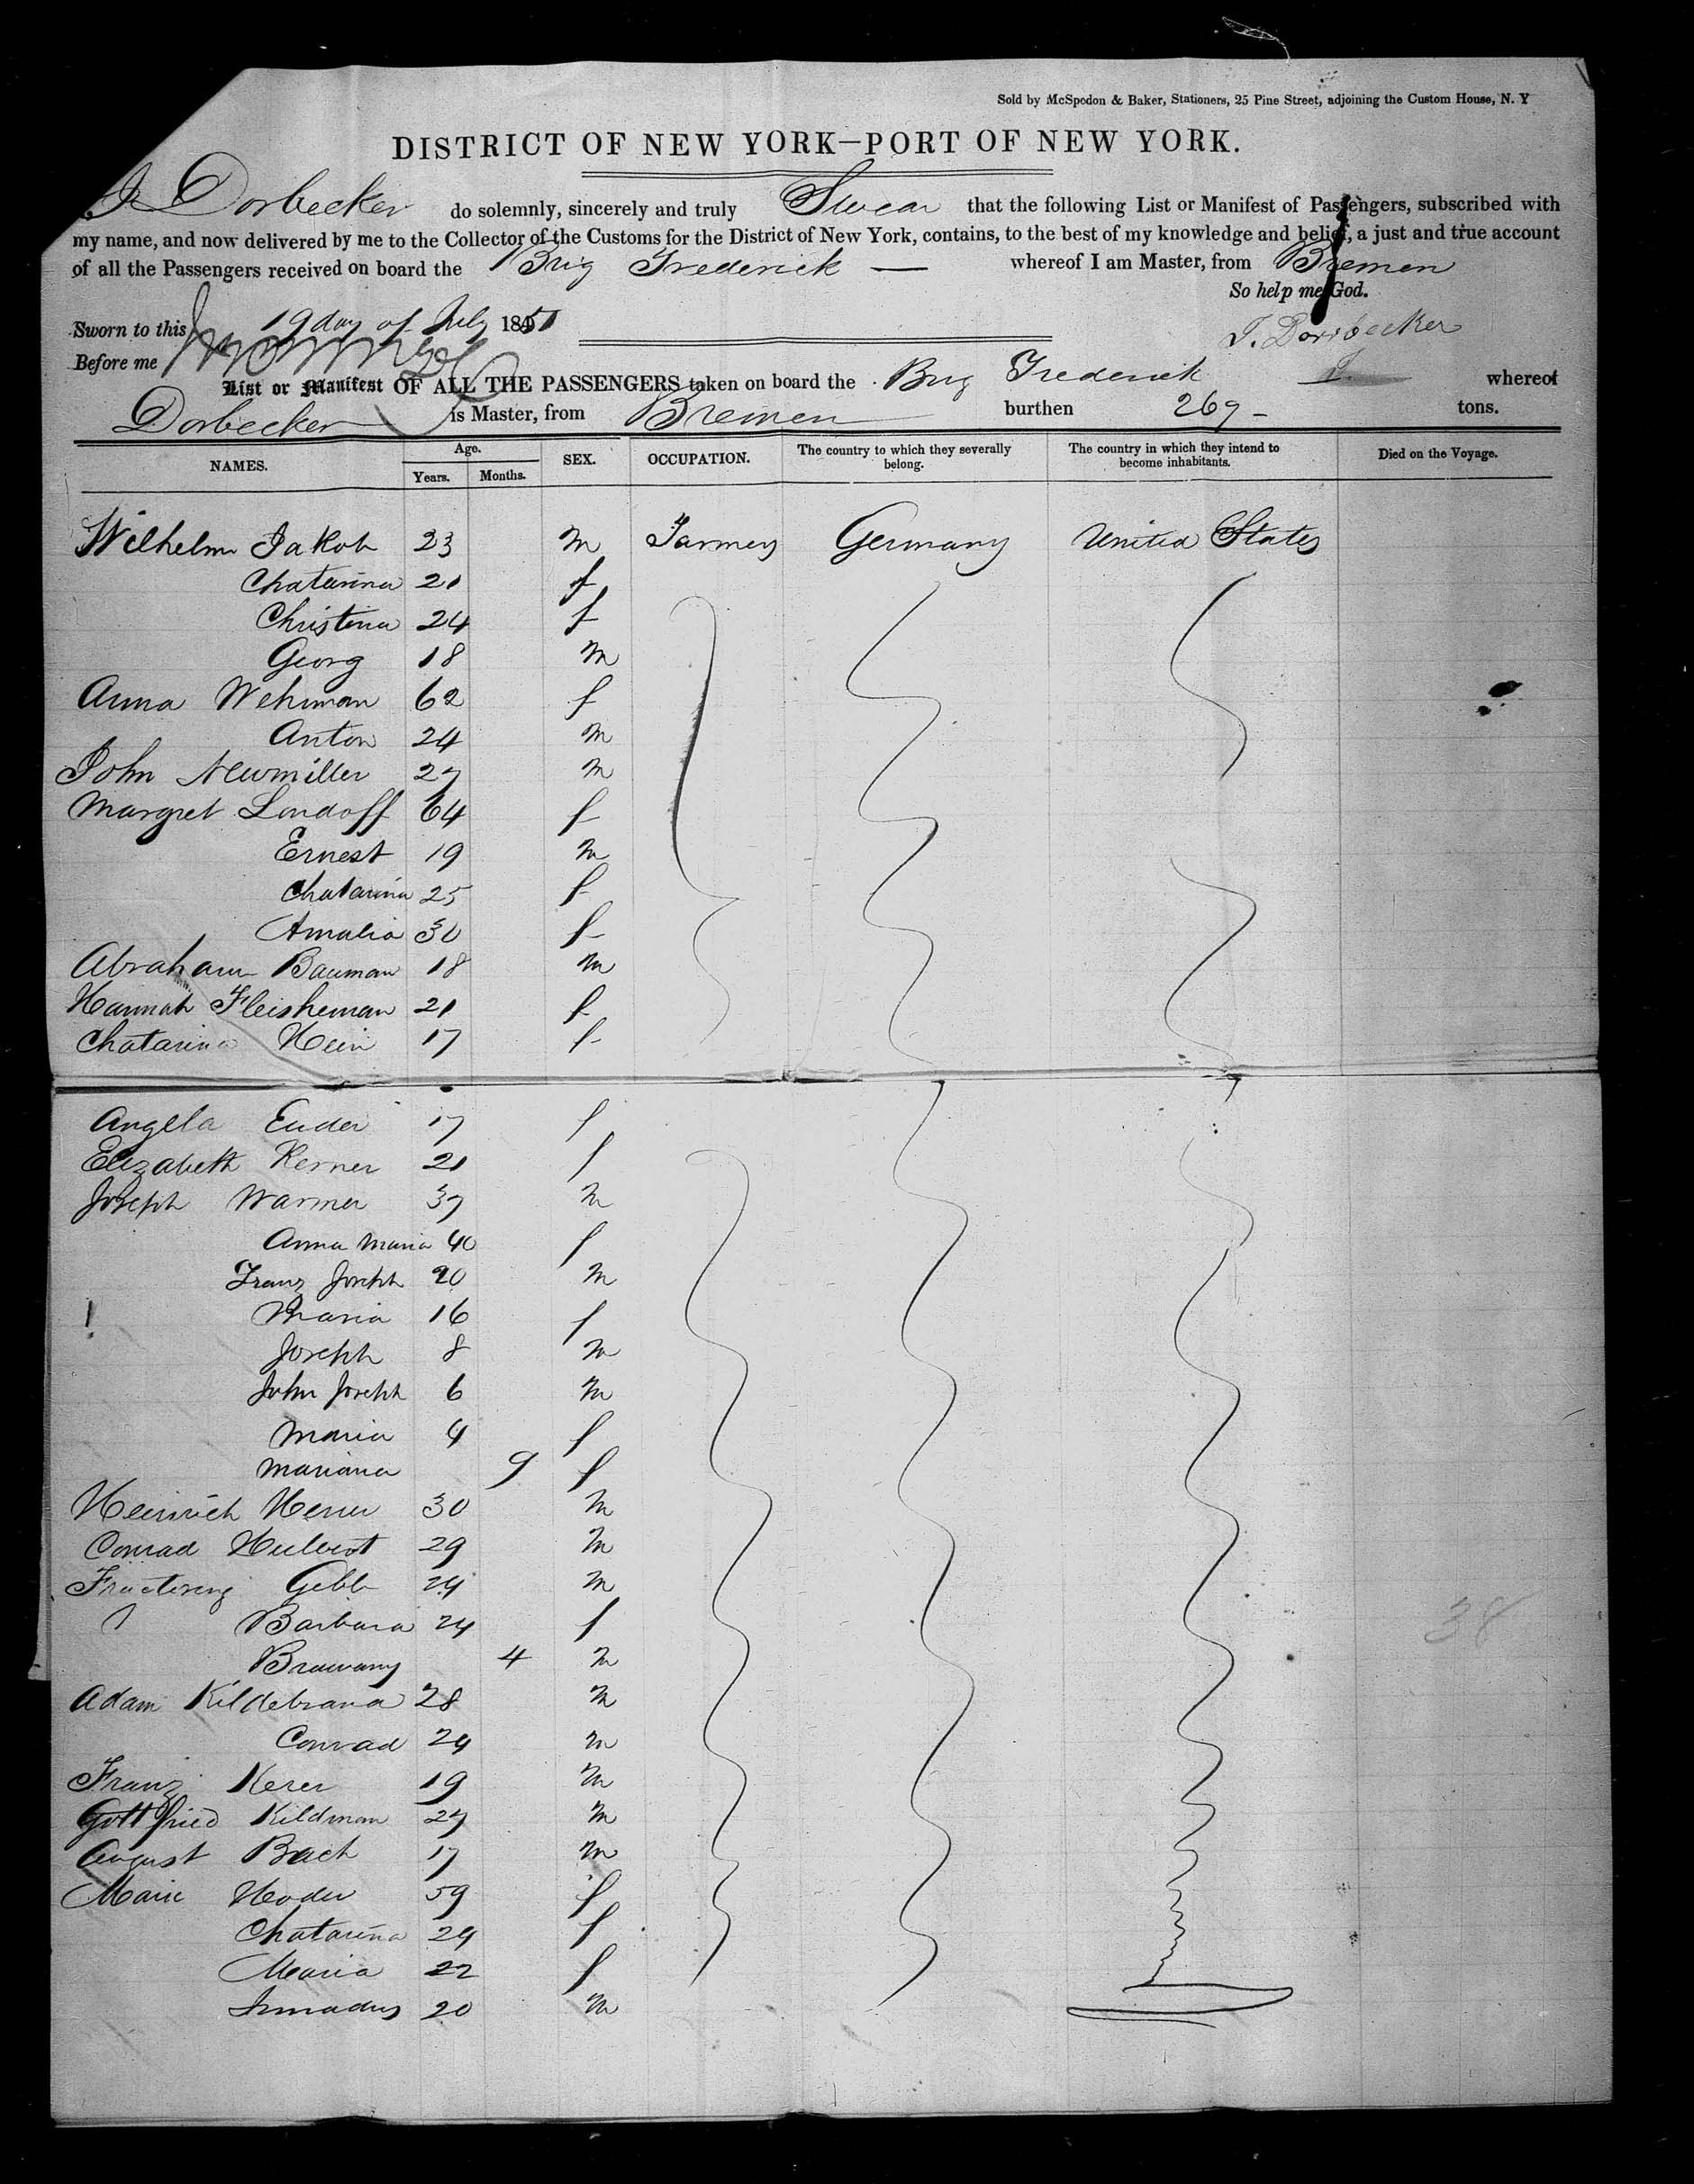 Sold by McSpedon & Baker, Stationers, 25 Pine Street, adjoining the Custom House, N. Y
DISTRICT OF NEW YORK—PORT OF NEW YORK.
I Dorbecker do solemnly, sincerely and truly Swear that the following List or Manifest of Passengers, subscribed with
my name, and now delivered by me to the Collector of the Customs for the District of New York, contains, to the best of my knowledge and belief, a just and true account
of all the Passengers received on board the Brig Frederick — whereof I am Master, from Bremen
So help me God.
Sworn to this 19 day of July 1851
J. Dorbecker
Before me
List or Manifest OF ALL THE PASSENGERS taken on board the Brig Frederick J. whereof
Dorbecker is Master, from Bremen burthen 269 - tons.
NAMES. Age. Years. Months. SEX. OCCUPATION. The country to which they severally belong. The country in which they intend to become inhabitants. Died on the Voyage.
Wilhelm Jakob 23 m Farmer Germany United States
Chatarina 21 f
Christina 24 f
Georg 18 m
Anna Wehman 62 f
Anton 24 m
John Newmiller 27 m
Margret Londoff 64 f
Ernest 19 m
Chatarina 25 f
Amalia 30 f
Abraham Bauman 18 m
Hannah Fleisheman 21 f
Chatarina Hein 17 f
Angela Euder 17 f
Elizabeth Kerner 21 f
Joseph Warmer 37 m
Anna Maria 40 f
Franz Joseph 20 m
Maria 16 f
Joseph 8 m
John Joseph 6 m
Maria 4 f
Mariana 9 f
Heinrich 30 m
Conrad 29 m
Gebb 24 m
Barbara 24 f
4 m
Adam Hildebrand 28 m
Conrad 24 m
Franz Kerer 19 m
Gottfried Kildman 27 m
August Bach 17 m
Marie Hoder 59 f
Chatarina 24 f
Maria 22 f
20 m
38